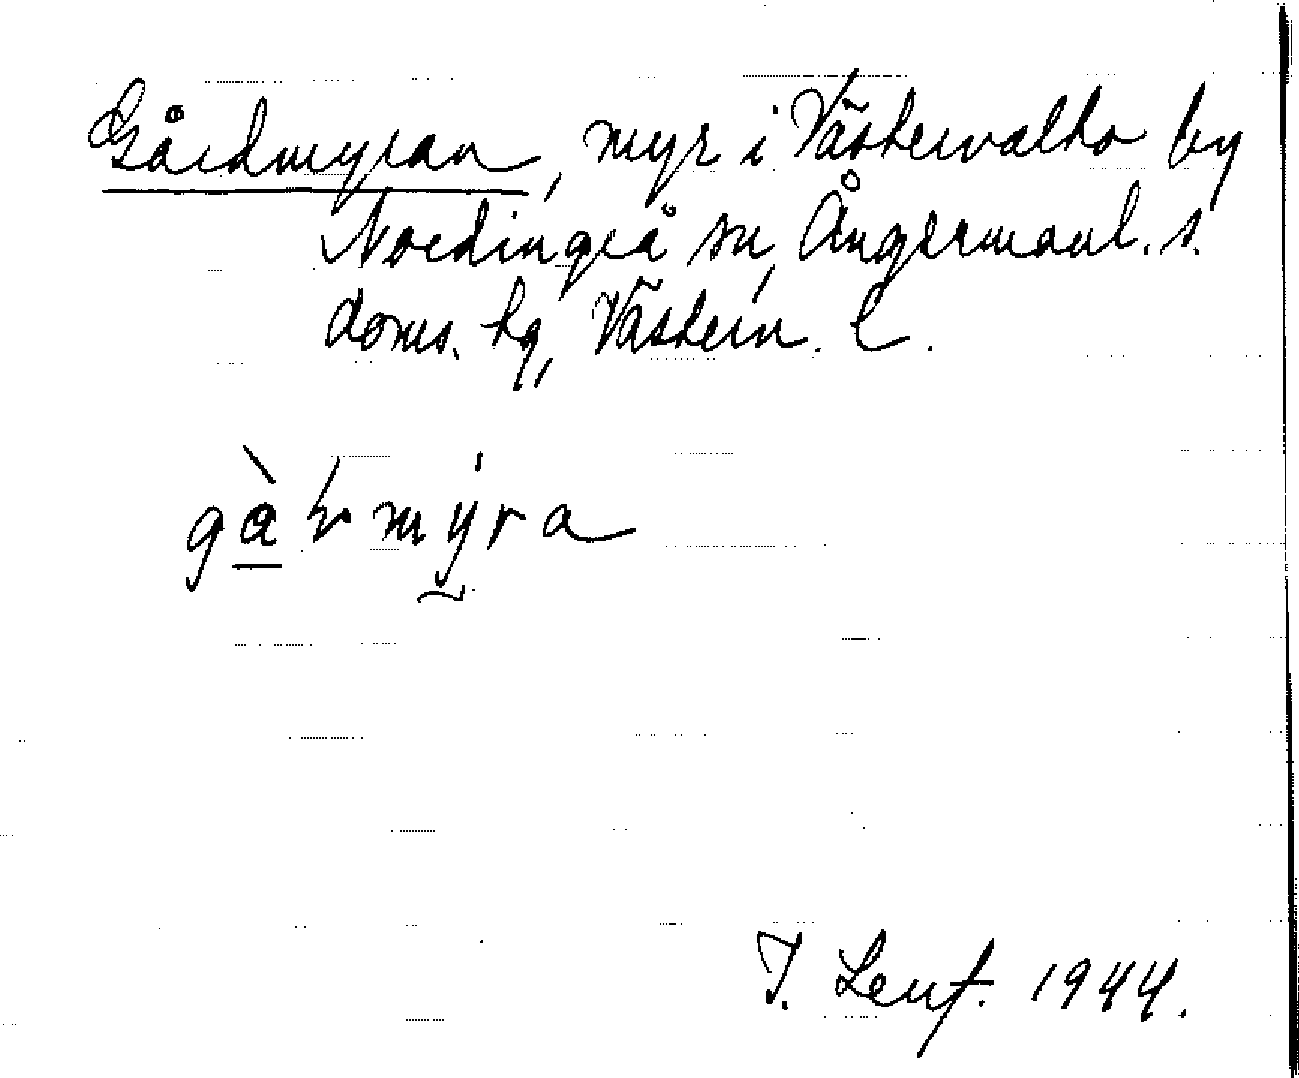 Gårdmyran, myr i Västervalto by
Nordingrå sn, Ångermanl. s.
doms. hq, Västern. l.
gàrmýra
J. Lenf. 1944.